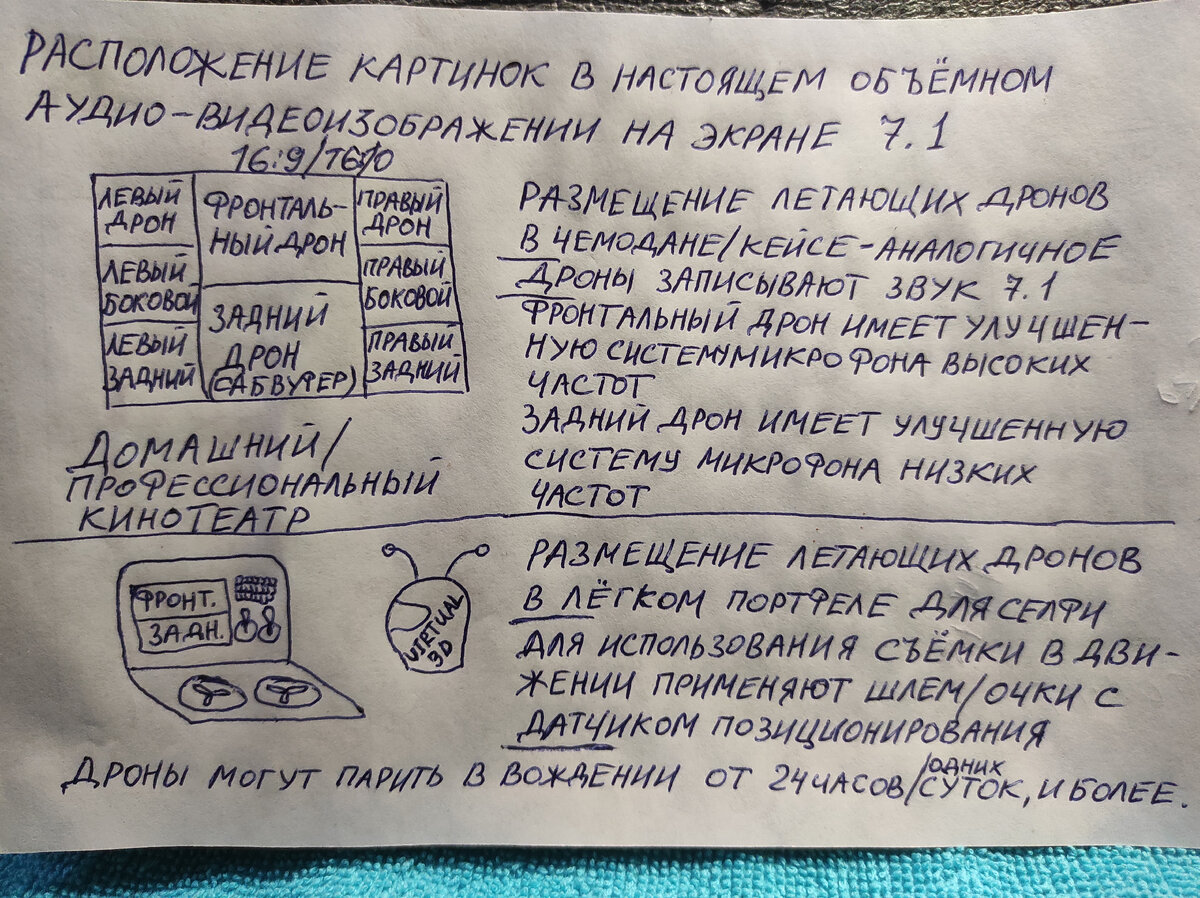 РАСПОЛОЖЕНИЕ КАРТИНОК В НАСТОЯЩЕМ ОБЪЁМНОМ
АУДИО-ВИДЕОИЗОБРАЖЕНИИ НА ЭКРАНЕ 7.1
16:9/16:10
ЛЕВЫЙ
ДРОН
ФРОНТАЛЬ-
НЫЙ ДРОН
ПРАВЫЙ
ДРОН
ЛЕВЫЙ
БОКОВОЙ
ПРАВЫЙ
БОКОВОЙ
ЛЕВЫЙ
ЗАДНИЙ
ЗАДНИЙ
ДРОН
(САБВУФЕР)
ПРАВЫЙ
ЗАДНИЙ
ДОМАШНИЙ/
ПРОФЕССИОНАЛЬНЫЙ
КИНОТЕАТР
РАЗМЕЩЕНИЕ ЛЕТАЮЩИХ ДРОНОВ
В ЧЕМОДАНЕ/КЕЙСЕ-АНАЛОГИЧНОЕ
ДРОНЫ ЗАПИСЫВАЮТ ЗВУК 7.1
ФРОНТАЛЬНЫЙ ДРОН ИМЕЕТ УЛУЧШЕН-
НУЮ СИСТЕМУ МИКРОФОНА ВЫСОКИХ
ЧАСТОТ
ЗАДНИЙ ДРОН ИМЕЕТ УЛУЧШЕННУЮ
СИСТЕМУ МИКРОФОНА НИЗКИХ
ЧАСТОТ
ФРОНТ.
ЗАДН.
VIRTUAL
3D
РАЗМЕЩЕНИЕ ЛЕТАЮЩИХ ДРОНОВ
В ЛЁГКОМ ПОРТФЕЛЕ ДЛЯ СЕЛФИ
ДЛЯ ИСПОЛЬЗОВАНИЯ СЪЁМКИ В ДВИ-
ЖЕНИИ ПРИМЕНЯЮТ ШЛЕМ/ОЧКИ С
ДАТЧИКОМ ПОЗИЦИОНИРОВАНИЯ
ДРОНЫ МОГУТ ПАРИТЬ В ВОЖДЕНИИ ОТ 24 ЧАСОВ/ОДНИХ СУТОК, И БОЛЕЕ.